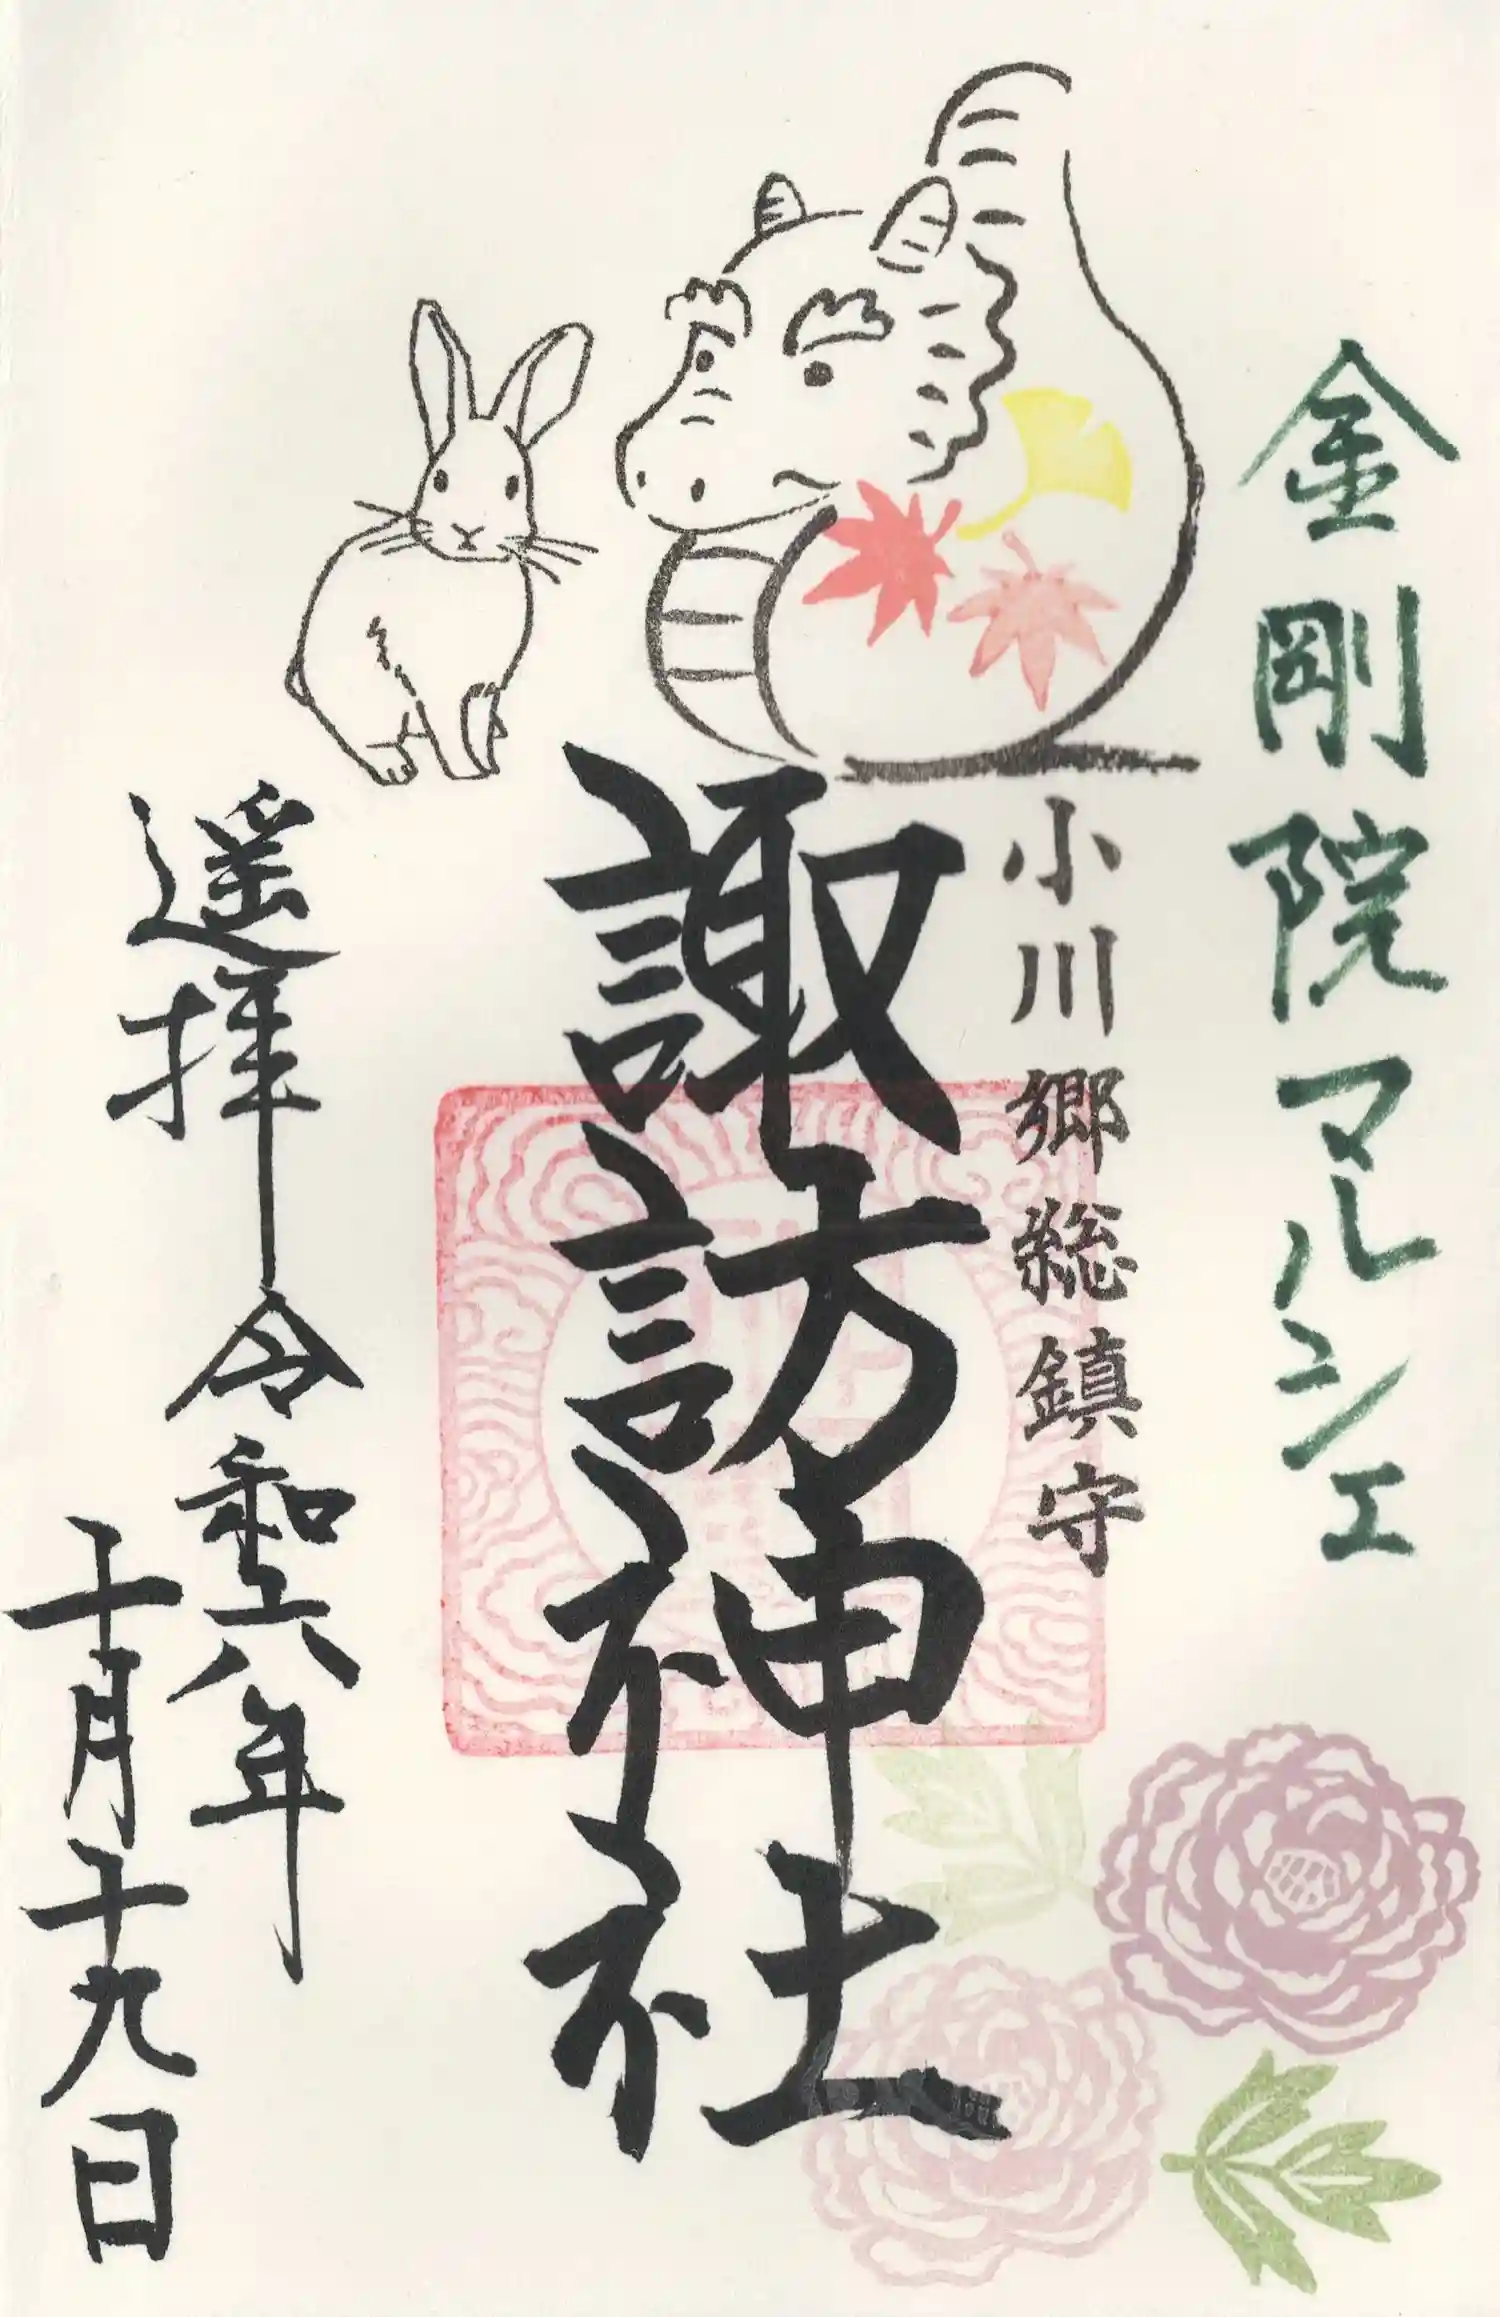 金剛院マルシェ
小川郷総鎮守
諏訪神社
遥拝
令和六年
十月十九日